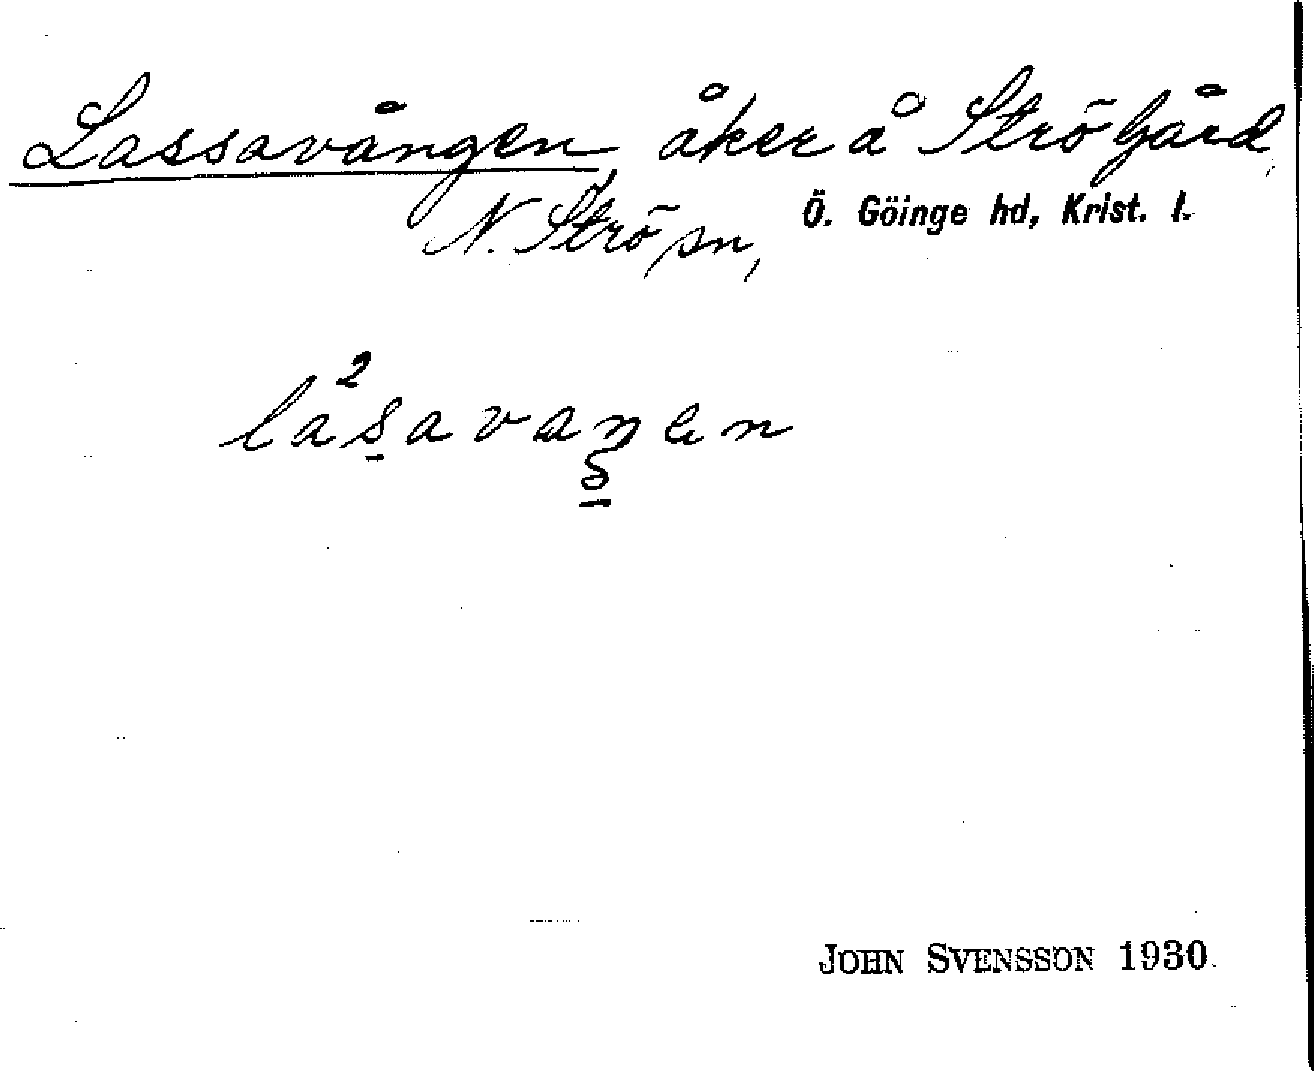 Lassavången åker å Ströhård
N. Strö sn, Ö. Göinge hd, Krist. l.
la²savaŋen
JOHN SVENSSON 1930.